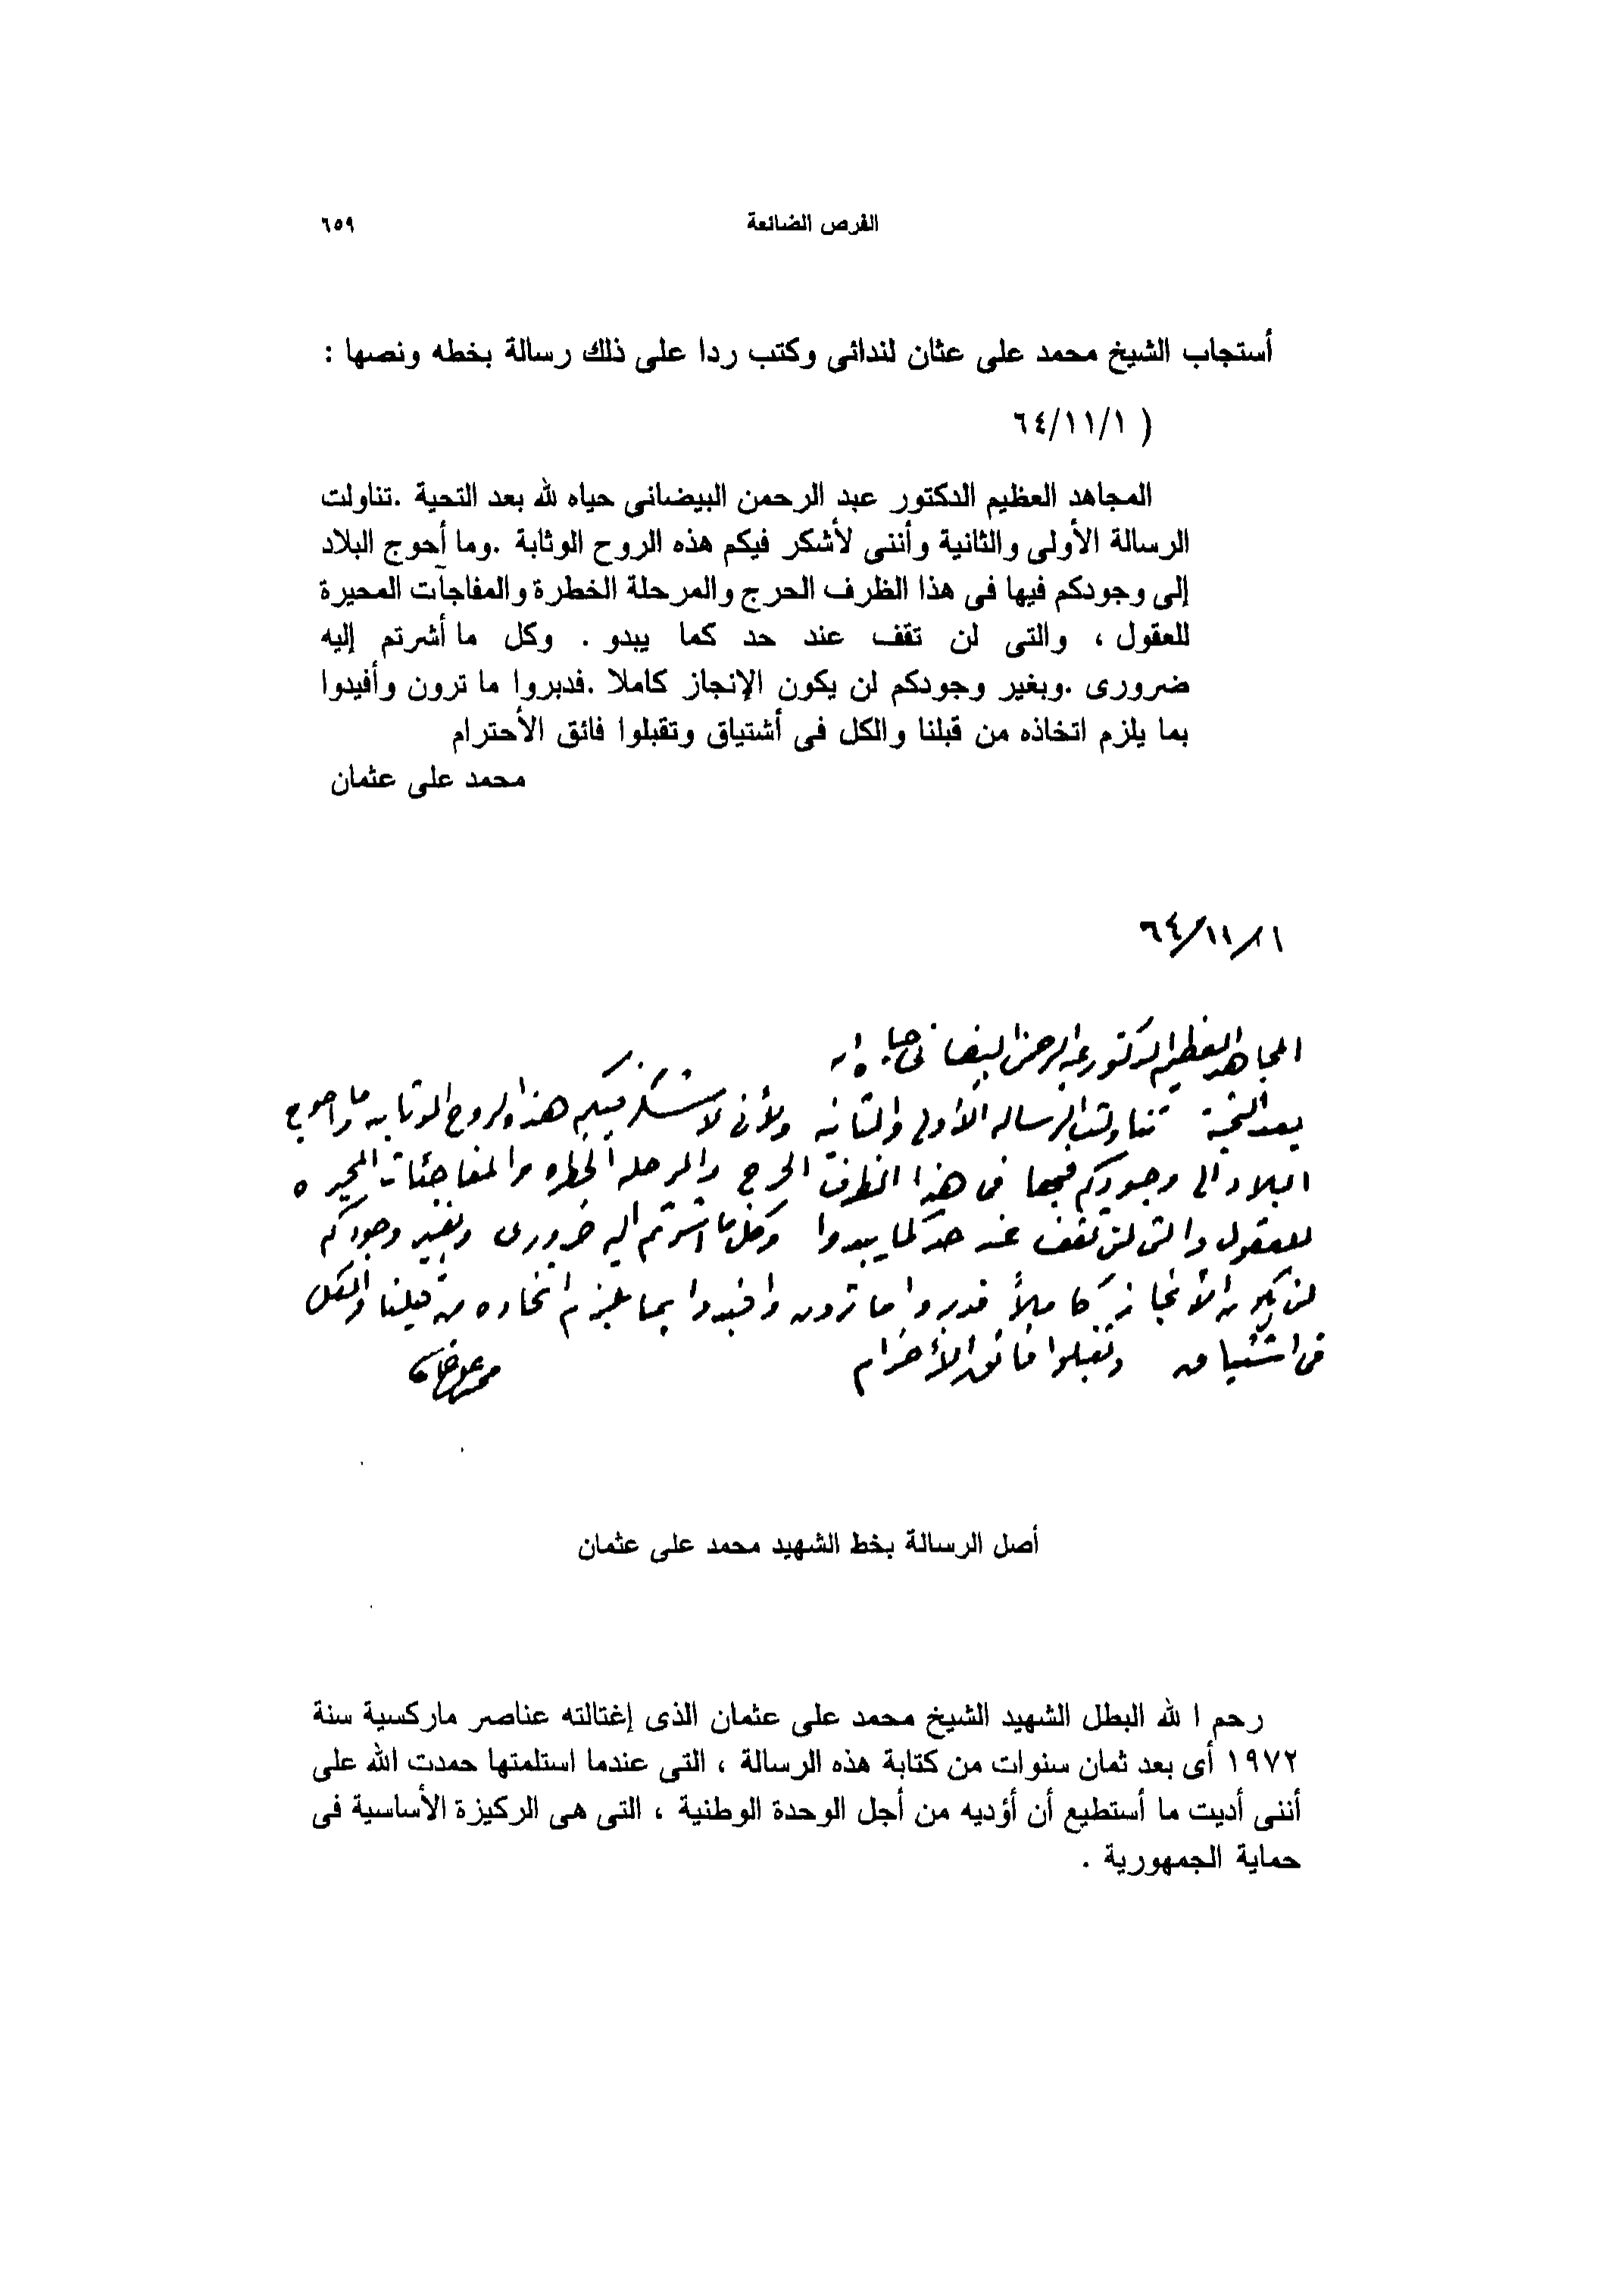 الفرص الضائعة ٦٥٩
أستجاب الشيخ محمد على عثان لندائى وكتب ردا على ذلك رسالة بخطه ونصها :
( ٦٤/١١/١
المجاهد العظيم الدكتور عبد الرحمن البيضانى حياه لله بعد التحية .تناولت
الرسالة الأولى والثانية وأننى لأشكر فيكم هذه الروح الوثابة .وما أحوج البلاد
إلى وجودكم فيها فى هذا الظرف الحرج والمرحلة الخطرة والمفاجآت المحيرة
للعقول ، والتى لن تقف عند حد كما يبدو . وكل ما أشرتم إليه
ضرورى .وبغير وجودكم لن يكون الإنجاز كاملا .فدبروا ما ترون وأفيدوا
بما يلزم اتخاذه من قبلنا والكل فى أشتياق وتقبلوا فائق الأحترام
محمد على عثمان
٦٤/١١/١
المجاهد العظيم الدكتور عبد الرحمن البيضانى حياه الله
بعد التحية تناولت الرساله الأولى والثانيه ولأنى لأشكر فيكم هذه الروح الوثابه وما احوج
البلاد الى وجودكم فيها فى هذا الظرف الحرج والمرحله الخطره والمفاجئات المحيره
للعقول والتى لن تقف عند حد كما يبدوا وكل ما اشرتم اليه ضرورى وبغير وجودكم
لن يكون الأنجاز كاملاً فدبروا ما ترون وافيدوا بما يلزم اتخاذه من قبلنا والكل
فى اشتياق وتقبلوا فائق الأحترام محمد على عثمان
أصل الرسالة بخط الشهيد محمد على عثمان
رحم ا لله البطل الشهيد الشيخ محمد على عثمان الذى إغتالته عناصر ماركسية سنة
١٩٧٢ أى بعد ثمان سنوات من كتابة هذه الرسالة ، التى عندما استلمتها حمدت الله على
أننى أديت ما أستطيع أن أؤديه من أجل الوحدة الوطنية ، التى هى الركيزة الأساسية فى
حماية الجمهورية .